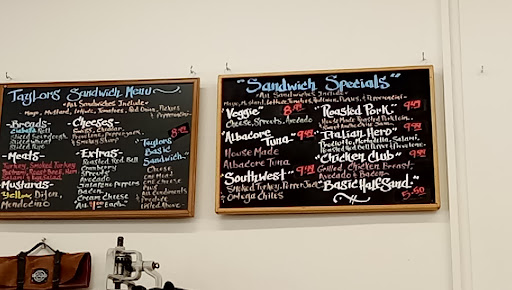 Taylors Sandwich Menu
~All Sandwiches Include~
Mayo, Mustard, Lettuce, Tomatoes, Red Onion, Pickles
& Pepperoncini
~Breads~
Ciabatta Roll
Sliced Sourdough
Sliced Wheat
Sliced Rye
~Meats~
Turkey, Smoked Turkey
Pastrami, Roast Beef, Ham
Salami & Egg Salad
~Mustards~
Yellow, Dijon,
Mendocino
~Cheeses~
Swiss, Cheddar,
Provolone
Pepperjack
& Smokey Sharp
~Extras~
Roasted Red Bell
Cranberry
Sprouts
Avocado
Jalapeno Peppers
Bacon
Cream Cheese
All $1.00 Each
Taylors
Basic
Sandwich~
Choose
One Meat
One Cheese
Plus
All Condiments
& Produce
Listed Above
"Sandwich Specials"
~All Sandwiches Include~
Mayo, Mustard, Lettuce, Tomatoes, Red Onion, Pickles, & Pepperoncini
"Veggie"
Cheese, Sprouts, Avocado
"Albacore
Tuna~ 9.49
House Made
Albacore Tuna
"Southwest" 9.99
Smoked Turkey, Pepper Jack
& Ortega Chiles
"Roasted Pork" 9.49
House Made Roasted Pork Loin
"Italian Hero" 9.99
Prosciutto, Mortadella, Salami,
Roasted Red Bell Pepper & Provolone
"Chicken Club" 9.99
Grilled Chicken Breast,
Avocado & Bacon
"Basic Half Sand."
5.50